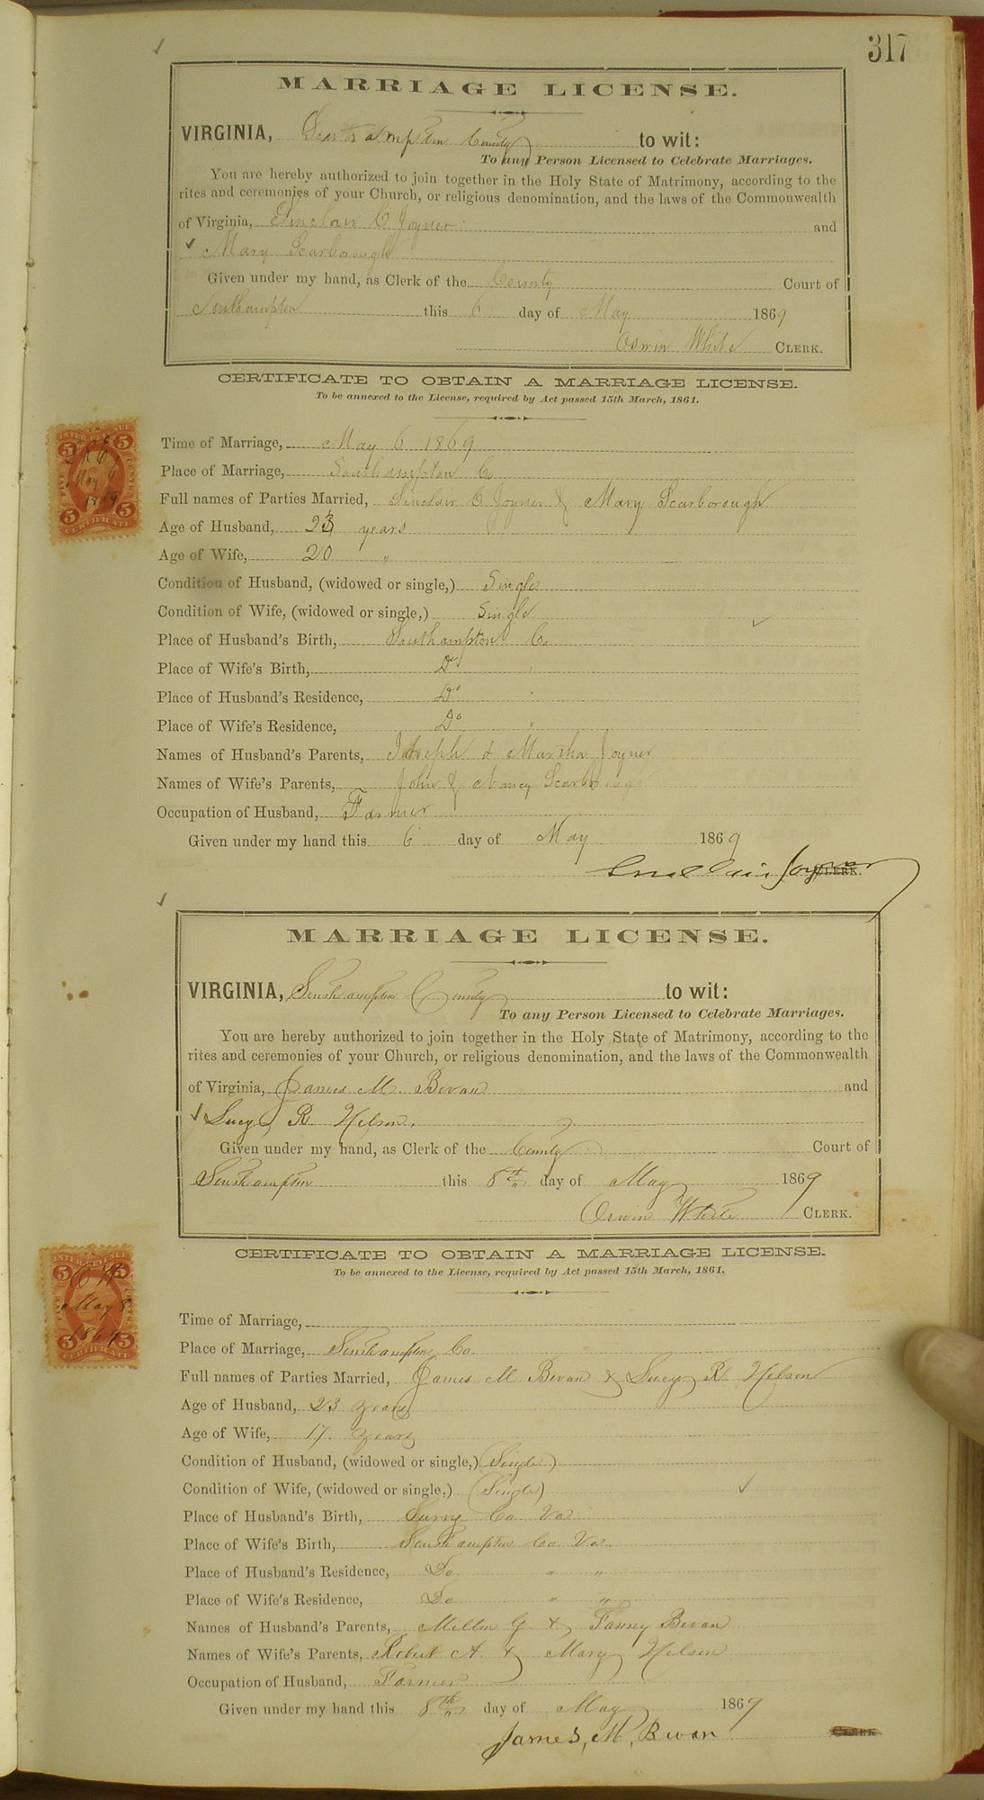 317
MARRIAGE LICENSE.
VIRGINIA, Southampton County to wit:
To any Person Licensed to Celebrate Marriages.
You are hereby authorized to join together in the Holy State of Matrimony, according to the
rites and ceremonies of your Church, or religious denomination, and the laws of the Commonwealth
of Virginia, Sinclair C Joyner and
Mary Scarborough
Given under my hand, as Clerk of the County Court of
Southampton this 6 day of May 1869
Oswin White CLERK.
CERTIFICATE TO OBTAIN A MARRIAGE LICENSE.
To be annexed to the License, required by Act passed 15th March, 1861.
Time of Marriage, May 6 1869
Place of Marriage, Southampton Co
Full names of Parties Married, Sinclair C Joyner & Mary Scarborough
Age of Husband, 23 years
Age of Wife, 20 "
Condition of Husband, (widowed or single,) Single
Condition of Wife, (widowed or single,) Single
Place of Husband's Birth, Southampton Co
Place of Wife's Birth, Do
Place of Husband's Residence, Do
Place of Wife's Residence, Do "
Names of Husband's Parents, Joseph & Martha Joyner
Names of Wife's Parents, John & Nancy Scarborough
Occupation of Husband, Farmer
Given under my hand this 6 day of May 1869
Sinclair Joyner CLERK.
INTER REVENUE
5 5
May 6
1869
5 5
CERTIFICATE
MARRIAGE LICENSE.
VIRGINIA, Southampton County to wit:
To any Person Licensed to Celebrate Marriages.
You are hereby authorized to join together in the Holy State of Matrimony, according to the
rites and ceremonies of your Church, or religious denomination, and the laws of the Commonwealth
of Virginia, James M. Bevan and
Lucy R Nelson.
Given under my hand, as Clerk of the County Court of
Southampton this 8th day of May 1869
Oswin White CLERK.
CERTIFICATE TO OBTAIN A MARRIAGE LICENSE.
To be annexed to the License, required by Act passed 15th March, 1861.
Time of Marriage,
Place of Marriage, Southampton Co
Full names of Parties Married, James M. Bevan & Lucy R Nelson
Age of Husband, 23 years
Age of Wife, 17. years
Condition of Husband, (widowed or single,) (Single)
Condition of Wife, (widowed or single,) (Single)
Place of Husband's Birth, Surry Co Va.
Place of Wife's Birth, Southampton Co Va.
Place of Husband's Residence, Do " "
Place of Wife's Residence, Do " "
Names of Husband's Parents, G & Fanny Bevan
Names of Wife's Parents, Robert A. & Mary Nelson
Occupation of Husband, Farmer
Given under my hand this 8th day of May 1869
James, M, Bevan CLERK
5 5
O W
May 8
1869
5 5
CERTIFICATE